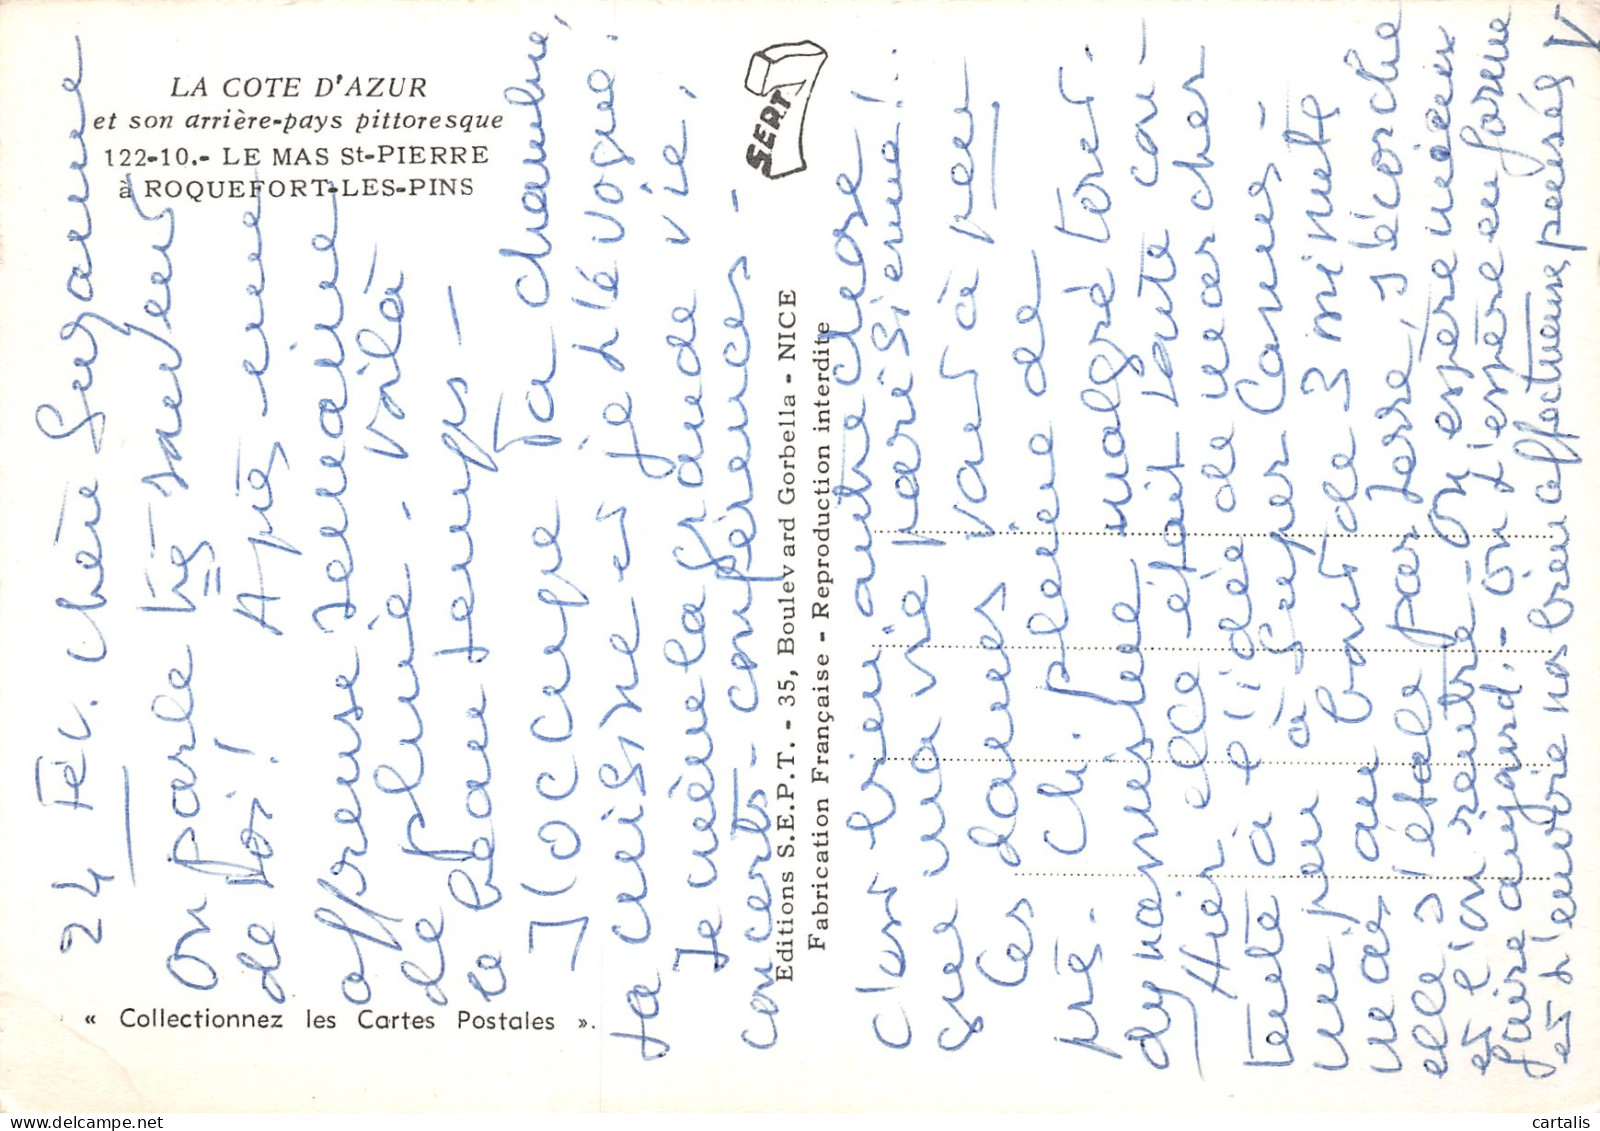 LA COTE D'AZUR
et son arrière-pays pittoresque
122-10.- LE MAS St-PIERRE
à ROQUEFORT-LES-PINS
SEPT
Editions S.E.P.T. - 35, Boulevard Gorbella - NICE
Fabrication Française - Reproduction interdite
« Collectionnez les Cartes Postales ».
24 Fév. Chère Suzanne
on parle très souvent
de toi! Après une
affreuse semaine
de pluie, voilà
le beau temps -
J'occupe ta chambre,
ta cuisine et je t'évoque.
Je mène la grande vie,
concerts - conférences -
c'est bien autre chose
que ma vie parisienne!..
Ces dames vont à peu
près. Ch. pleine de
dynamisme malgré tout.
Hier elle était toute
tente à l'idée de marcher
un peu à Super Cannes -
mais au bout de 3 minutes
elle s'étale par terre, s'écorche
et l'on rentre - On espère mieux
faire aujourd. - on t'espère en forme
et t'envoie nos bien affectueuses pensées
cartalis